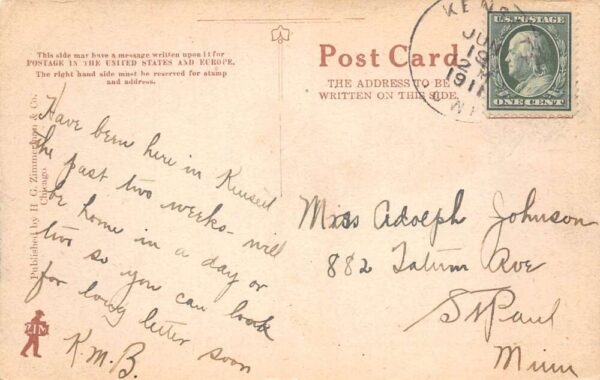 This side may have a message written upon it for
POSTAGE IN THE UNITED STATES AND EUROPE.
The right hand side must be reserved for stamp
and address.
Post Card.
THE ADDRESS TO BE
WRITTEN ON THIS SIDE.
KENS
JUN
19
2
1911
WIS
U.S. POSTAGE
ONE CENT
Published by H. G. Zimmerman & Co.
Chicago.
ZIM
Have been here in
the past two weeks - will
be home in a day or
two so you can look
for long letter soon
K.M.B.
Miss Adolph Johnson
882 Tatum Ave
St Paul
Minn